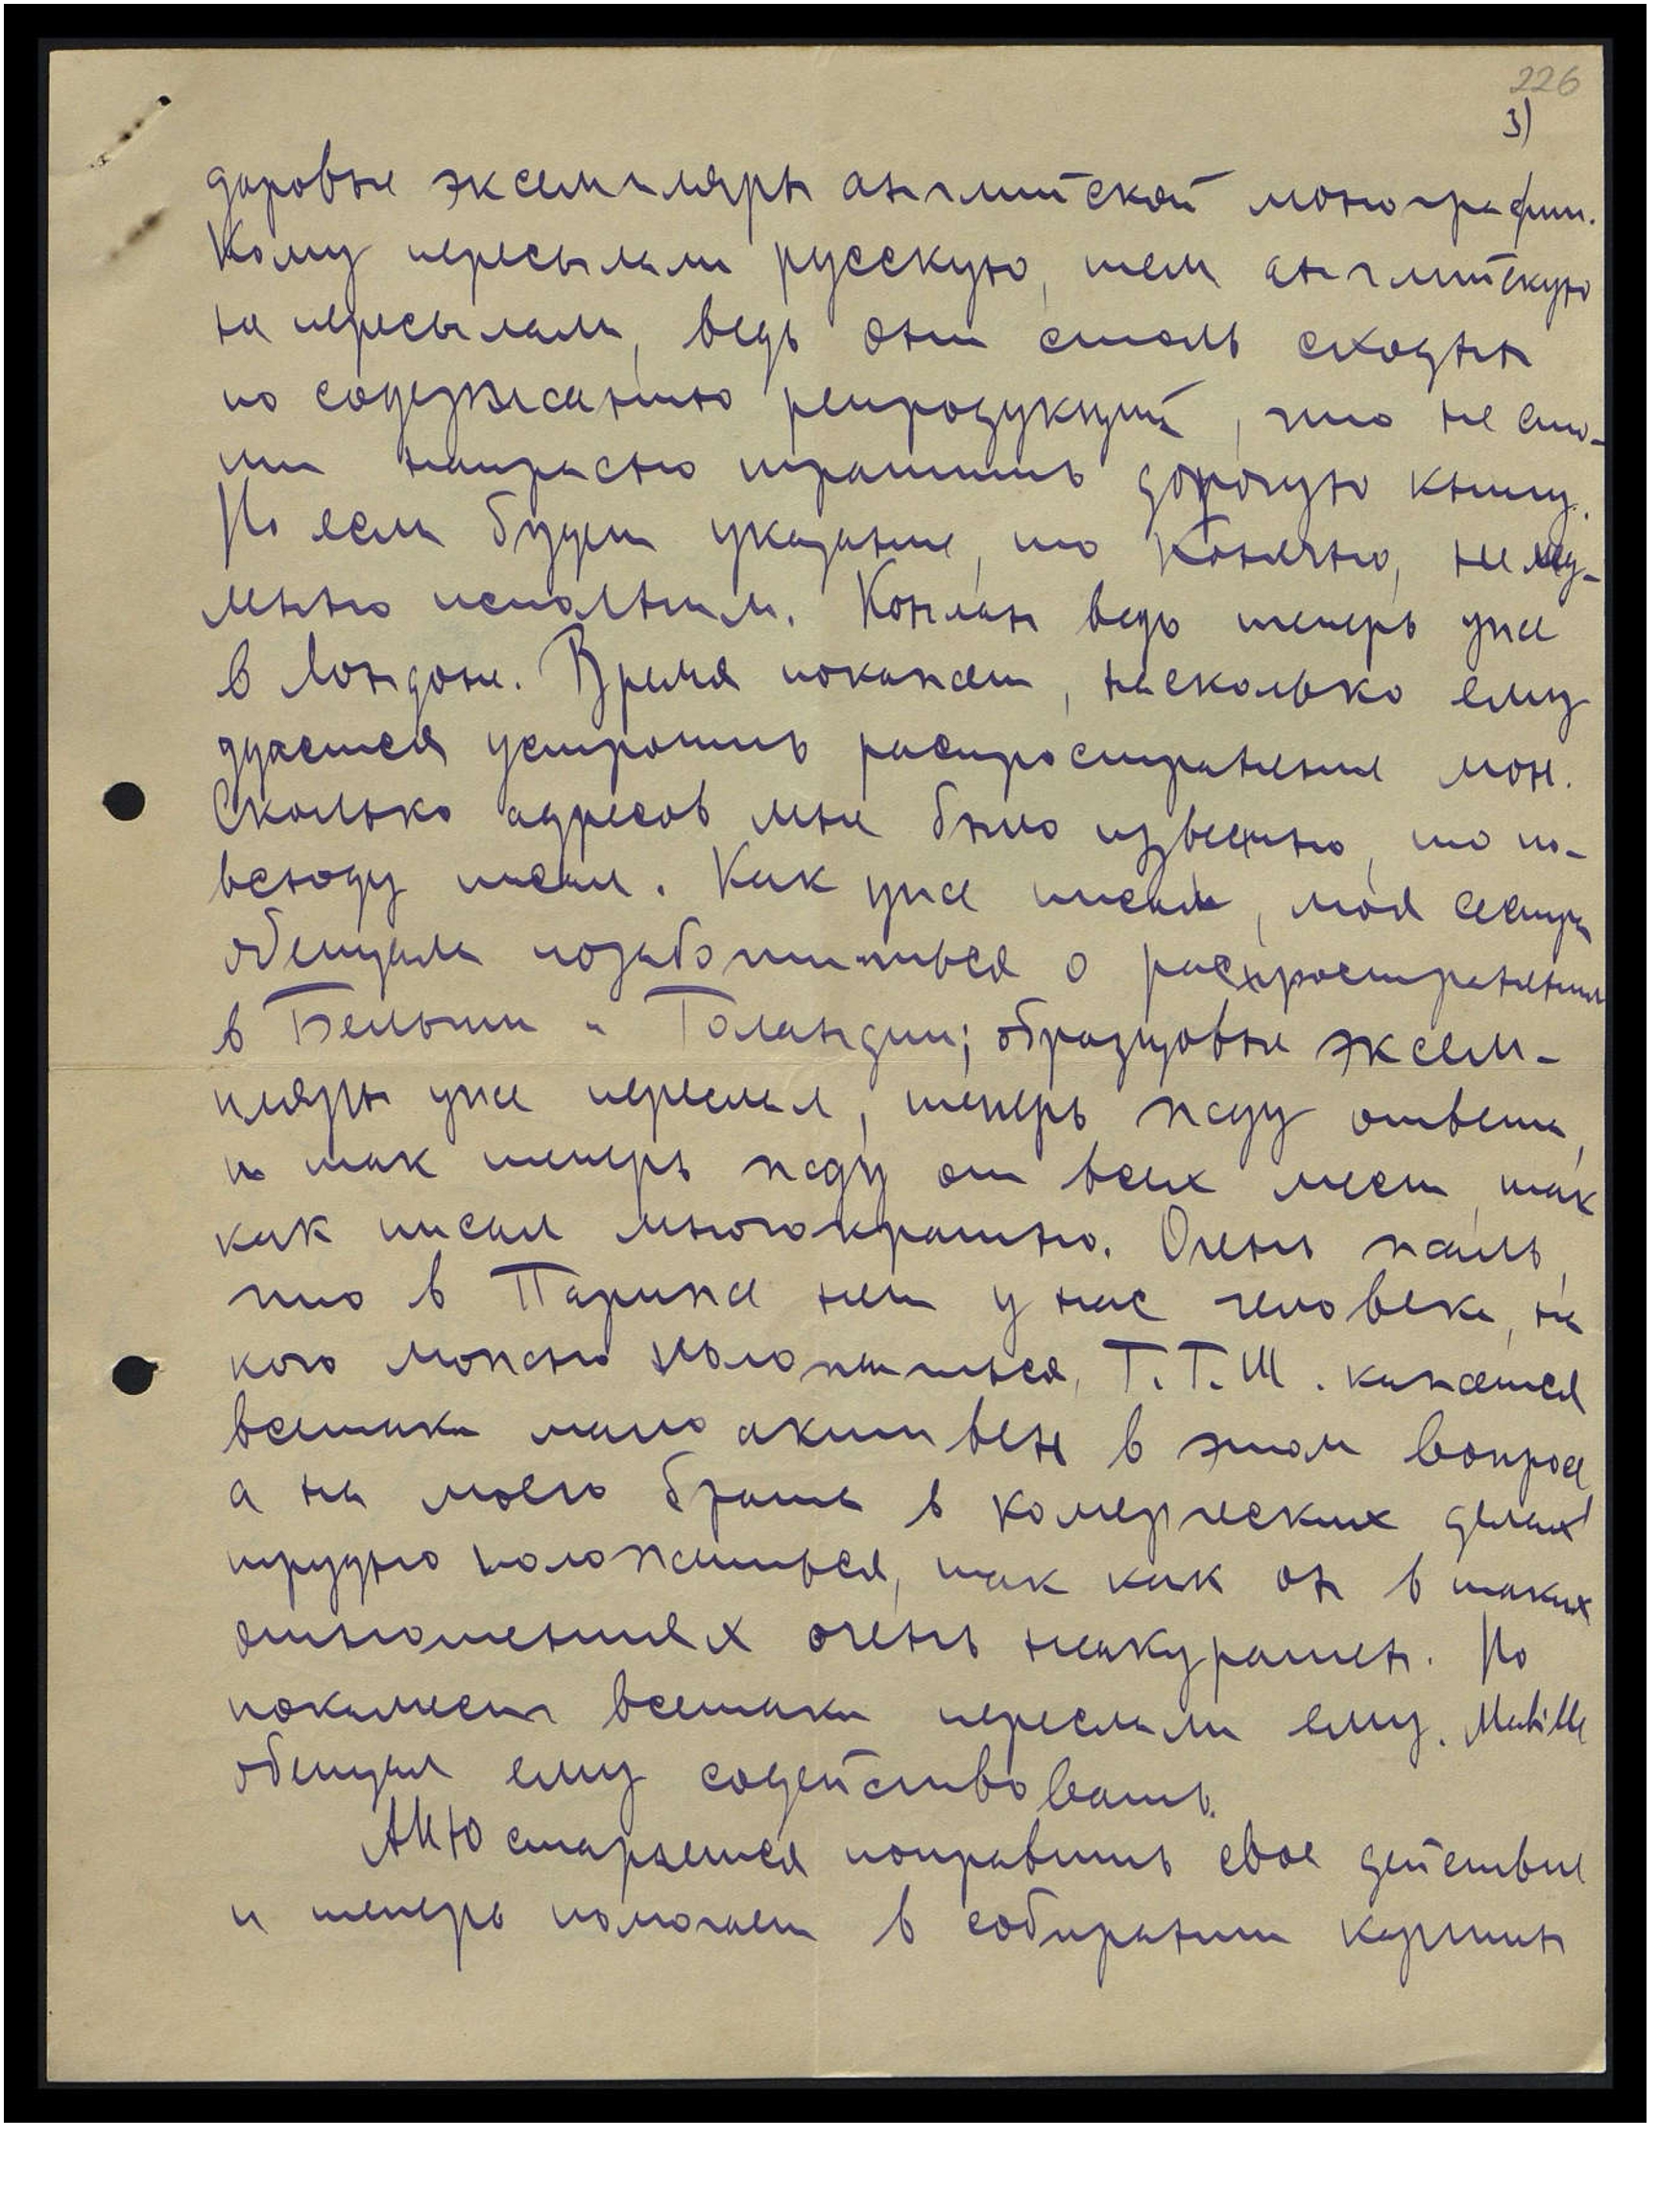 226
3)
даровые экземпляры английской монографии.
Кому пересылали русскую, тем английскую
не пересылали, ведь они столь сходны
по содержанию репродукций, что не сто-
ит напрасно тратить дорогую книгу.
Но если будет указание, то конечно, немед-
ленно исполним. Конлан ведь теперь уже
в Лондоне. Время покажет, насколько ему
удастся устроить распространение мон.
Сколько адресов мне было известно, то по-
всюду писал. Как уже писал, моя сестра
обещала позаботиться о распространении
в Бельгии и Голандии; образцовые экзем-
пляры уже переслал, теперь жду ответа,
и так теперь жду от всех мест, так
как писал многократно. Очень жаль,
что в Париже нет у нас человека, на
кого можно положиться, Г.Г.Ш. кажется
всетаки мало активен в этом вопросе
а на моего брата в комерческих делах
трудно положиться, так как он в таких
отношениях очень неакуратен. Но
покамест всетаки переслали ему.
обещал ему содействовать.
АИЮ старается поправить свое действие
и теперь помогает в собирании картин